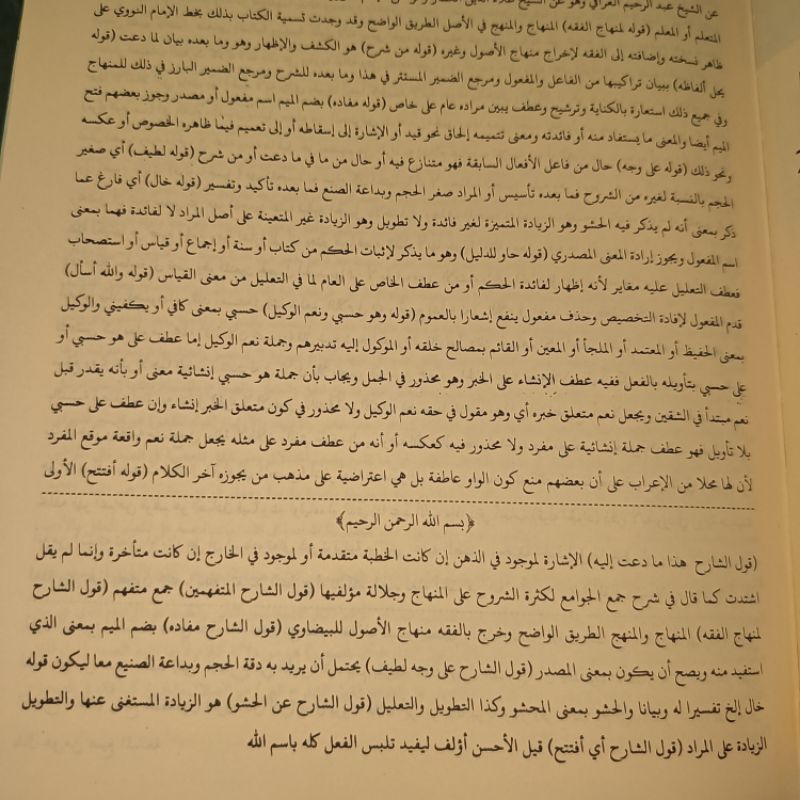 عن الشيخ عبد الرحيم العراقي وهو عن الشيخ علاء الدين
المتعلم أو المعلم (قوله لمنهاج الفقه) المنهاج والمنهج في الأصل الطريق الواضح وقد وجدت تسمية الكتاب بذلك بخط الإمام النووي على
ظاهر نسخته وإضافته إلى الفقه لإخراج منهاج الأصول وغيره (قوله من شرح) هو الكشف والإظهار وهو وما بعده بيان لما دعت (قوله
يحل ألفاظه) ببيان تراكيبها من الفاعل والمفعول ومرجع الضمير المستتر في هذا وما بعده للشرح ومرجع الضمير البارز في ذلك للمنهاج
وفي جميع ذلك استعارة بالكناية وترشيح وعطف يبين مراده عام على خاص (قوله مفاده) بضم الميم اسم مفعول أو مصدر وجوز بعضهم فتح
الميم أيضا والمعنى ما يستفاد منه أو فائدته ومعنى تتميمه إلحاق نحو قيد أو الإشارة إلى إسقاطه أو إلى تعميم فيما ظاهره الخصوص أو عكسه
ونحو ذلك (قوله على وجه) حال من فاعل الأفعال السابقة فهو متنازع فيه أو حال من ما في ما دعت أو من شرح (قوله لطيف) أي صغير
الحجم بالنسبة لغيره من الشروح فما بعده تأسيس أو المراد صغر الحجم وبداعة الصنع فما بعده تأكيد وتفسير (قوله خال) أي فارغ عما
ذكر بمعنى أنه لم يذكر فيه الحشو وهو الزيادة المتميزة لغير فائدة ولا تطويل وهو الزيادة غير المتعينة على أصل المراد لا لفائدة فهما بمعنى
اسم المفعول ويجوز إرادة المعنى المصدري (قوله حاو للدليل) وهو ما يذكر لإثبات الحكم من كتاب أو سنة أو إجماع أو قياس أو استصحاب
فعطف التعليل عليه مغاير لأنه إظهار لفائدة الحكم أو من عطف الخاص على العام لما في التعليل من معنى القياس (قوله والله أسأل)
قدم المفعول لإفادة التخصيص وحذف مفعول ينفع إشعارا بالعموم (قوله وهو حسبي ونعم الوكيل) حسبي بمعنى كافي أو يكفيني والوكيل
بمعنى الحفيظ أو المعتمد أو الملجأ أو المعين أو القائم بمصالح خلقه أو الموكول إليه تدبيرهم وجملة نعم الوكيل إما عطف على هو حسبي أو
على حسبي بتأويله بالفعل ففيه عطف الإنشاء على الخبر وهو محذور في الجمل ويجاب بأن جملة هو حسبي إنشائية معنى أو بأنه يقدر قبل
نعم مبتدأ في الشقين ويجعل نعم متعلق خبره أي وهو مقول في حقه نعم الوكيل ولا محذور في كون متعلق الخبر إنشاء وإن عطف على حسبي
بلا تأويل فهو عطف جملة إنشائية على مفرد ولا محذور فيه كعكسه أو أنه من عطف مفرد على مثله يجعل جملة نعم واقعة موقع المفرد
لأن لها محلا من الإعراب على أن بعضهم منع كون الواو عاطفة بل هي اعتراضية على مذهب من يجوزه آخر الكلام (قوله أفتتح) الأولى
﴿بسم الله الرحمن الرحيم﴾
(قول الشارح هذا ما دعت إليه) الإشارة لموجود في الذهن إن كانت الخطبة متقدمة أو لموجود في الخارج إن كانت متأخرة وإنما لم يقل
اشتدت كما قال في شرح جمع الجوامع لكثرة الشروح على المنهاج وجلالة مؤلفيها (قول الشارح المتفهمين) جمع متفهم (قول الشارح
لمنهاج الفقه) المنهاج والمنهج الطريق الواضح وخرج بالفقه منهاج الأصول للبيضاوي (قول الشارح مفاده) بضم الميم بمعنى الذي
استفيد منه ويصح أن يكون بمعنى المصدر (قول الشارح على وجه لطيف) يحتمل أن يريد به دقة الحجم وبداعة الصنيع معا ليكون قوله
خال إلخ تفسيرا له وبيانا والحشو بمعنى المحشو وكذا التطويل والتعليل (قول الشارح عن الحشو) هو الزيادة المستغنى عنها والتطويل
الزيادة على المراد (قول الشارح أي أفتتح) قيل الأحسن أؤلف ليفيد تلبس الفعل كله باسم الله